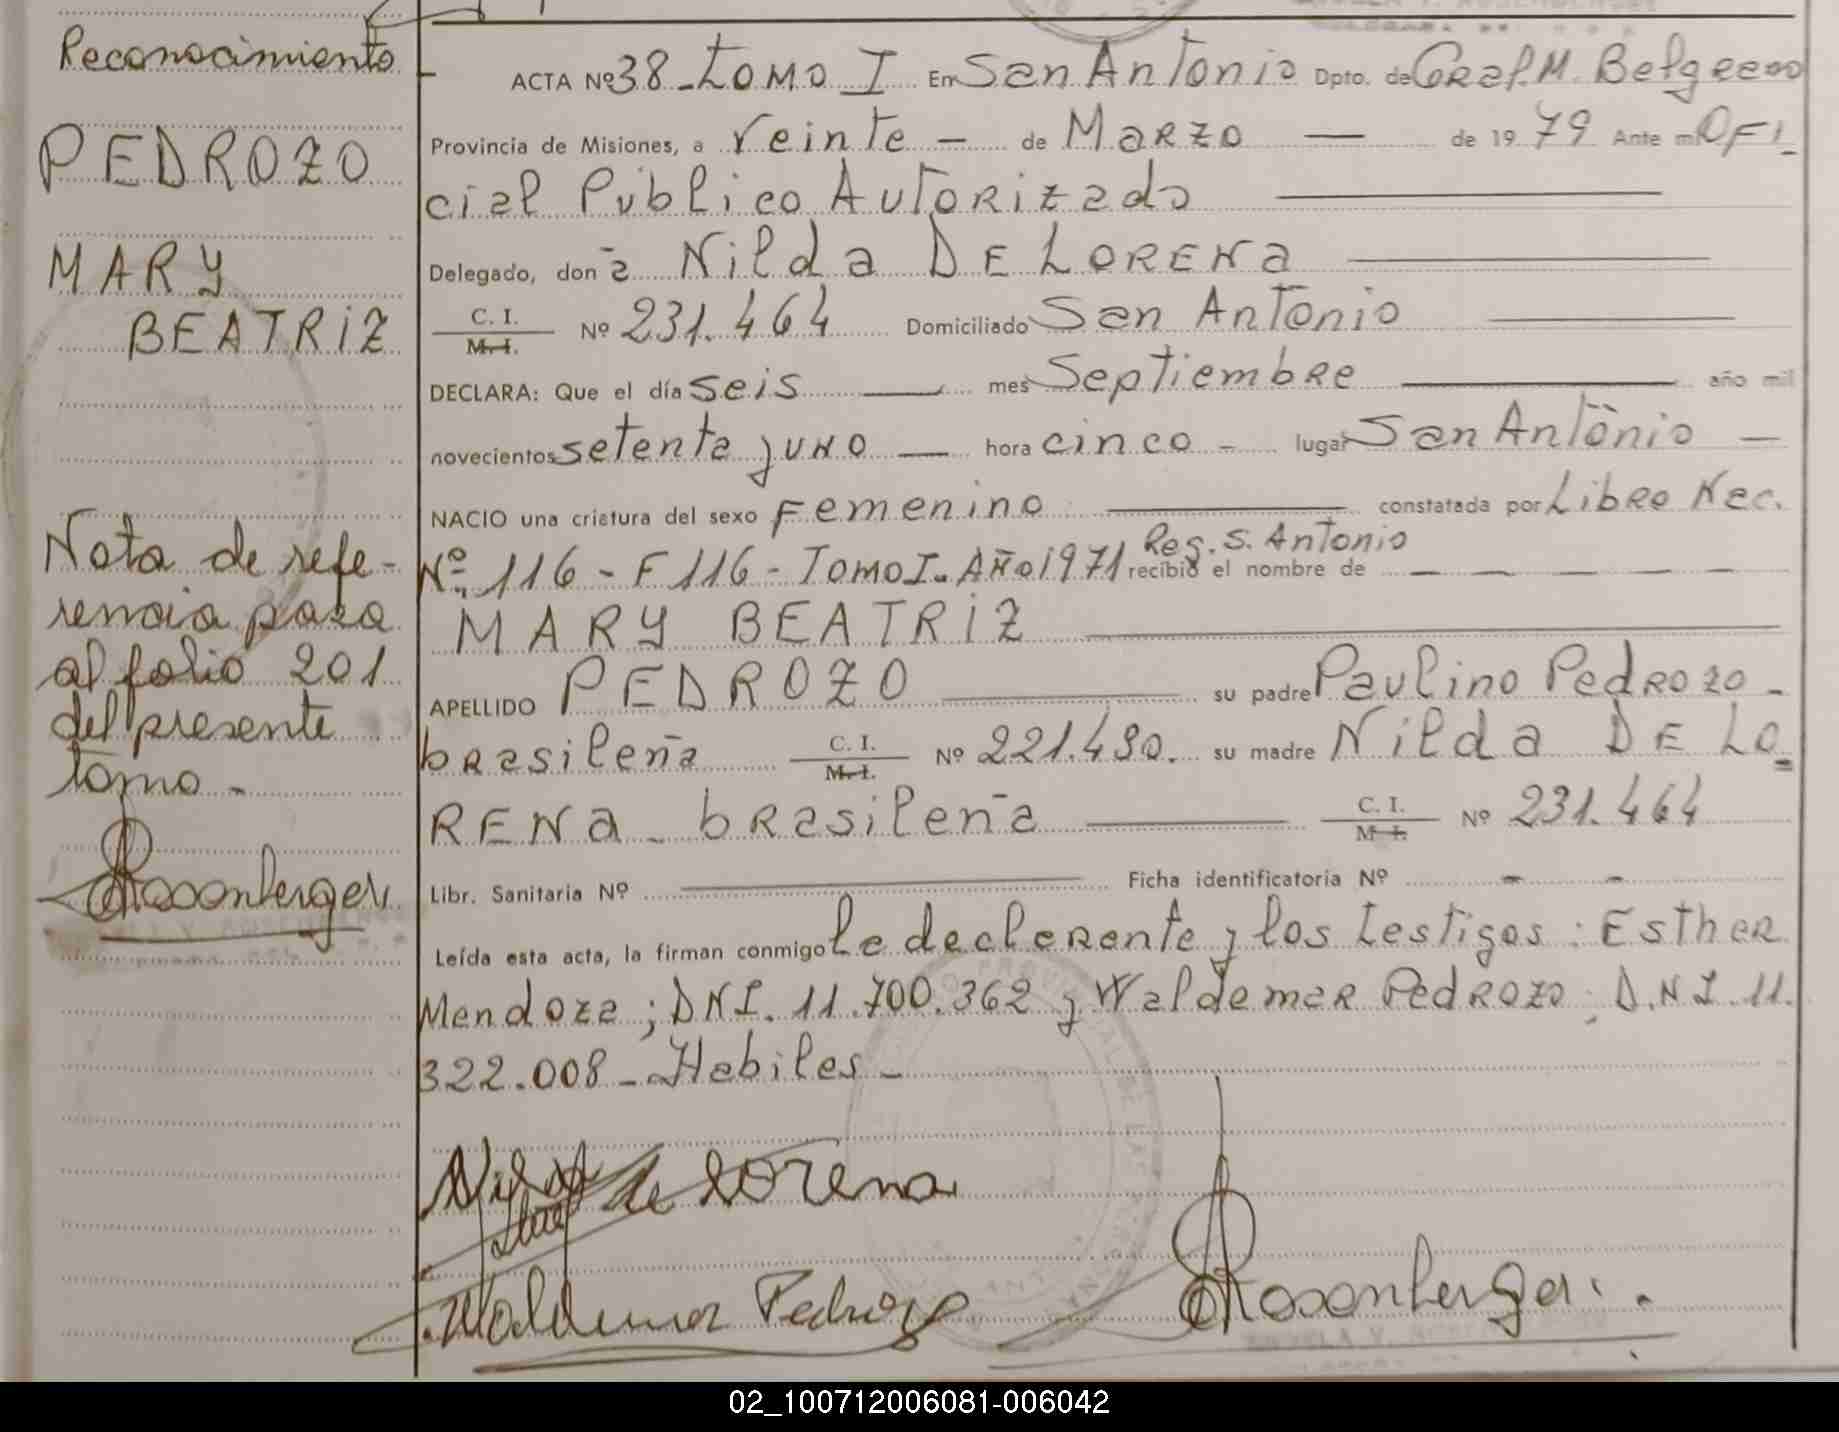 Reconocimiento
PEDROZO
MARY
BEATRIZ
Nota de refe-
rencia pasa
al folio 201
del presente
tomo -
Rosenberger
ACTA Nº 38 - Tomo I En San Antonio Dpto. de Gral. M. Belgrano
Provincia de Misiones, a Veinte - de Marzo — de 1979 Ante mi Ofi_
cial Público Autorizado
Delegado, don a Nilda De Lorena
C. I. / M. I. Nº 231.464 Domiciliado San Antonio
DECLARA: Que el día seis — mes Septiembre — año mil
novecientos setenta y uno — hora cinco - lugar San Antonio —
NACIO una criatura del sexo Femenino — constatada por Libro Nac.
Nº 116 - F 116 - Tomo I. Año 1971 Reg. S. Antonio recibió el nombre de — — — — —
MARY BEATRIZ
APELLIDO PEDROZO — su padre Paulino Pedrozo -
brasileña C. I. / M. I. Nº 221.490. su madre Nilda De Lo_
rena - brasileña — C. I. / M. I. Nº 231.464
Libr. Sanitaria Nº — Ficha identificatoria Nº - -
Leída esta acta, la firman conmigo la declarante y los testigos: Esther
Mendoza; DNI. 11.700.362 y Waldemar Pedrozo; D.N.I. 11.
322.008 - Habiles -
Nilda de Lorena
Waldemar Pedrozo
Rosenberger
02_100712006081-006042